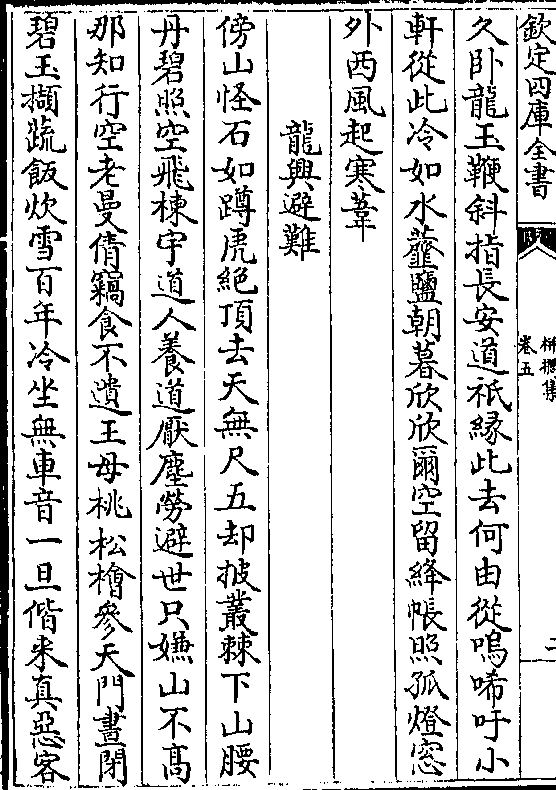 欽定四庫全書
栟櫚集
卷五
二
久卧龍玉鞭斜指長安道祇縁此去何由從嗚唏吁小
軒從此冷如水虀鹽朝暮欣欣爾空留絳帳照孤燈窓
外西風起寒葦
龍興避難
傍山怪石如蹲虎絶頂去天無尺五却披叢棘下山腰
丹碧照空飛棟宇道人養道厭塵勞避世只嫌山不髙
那知行空老曼倩竊食不遺王母桃松檜參天門晝閉
碧玉擷蔬飯炊雪百年冷坐無車音一旦偕来真惡客